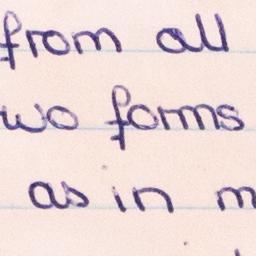 from all
wo forms
as in m